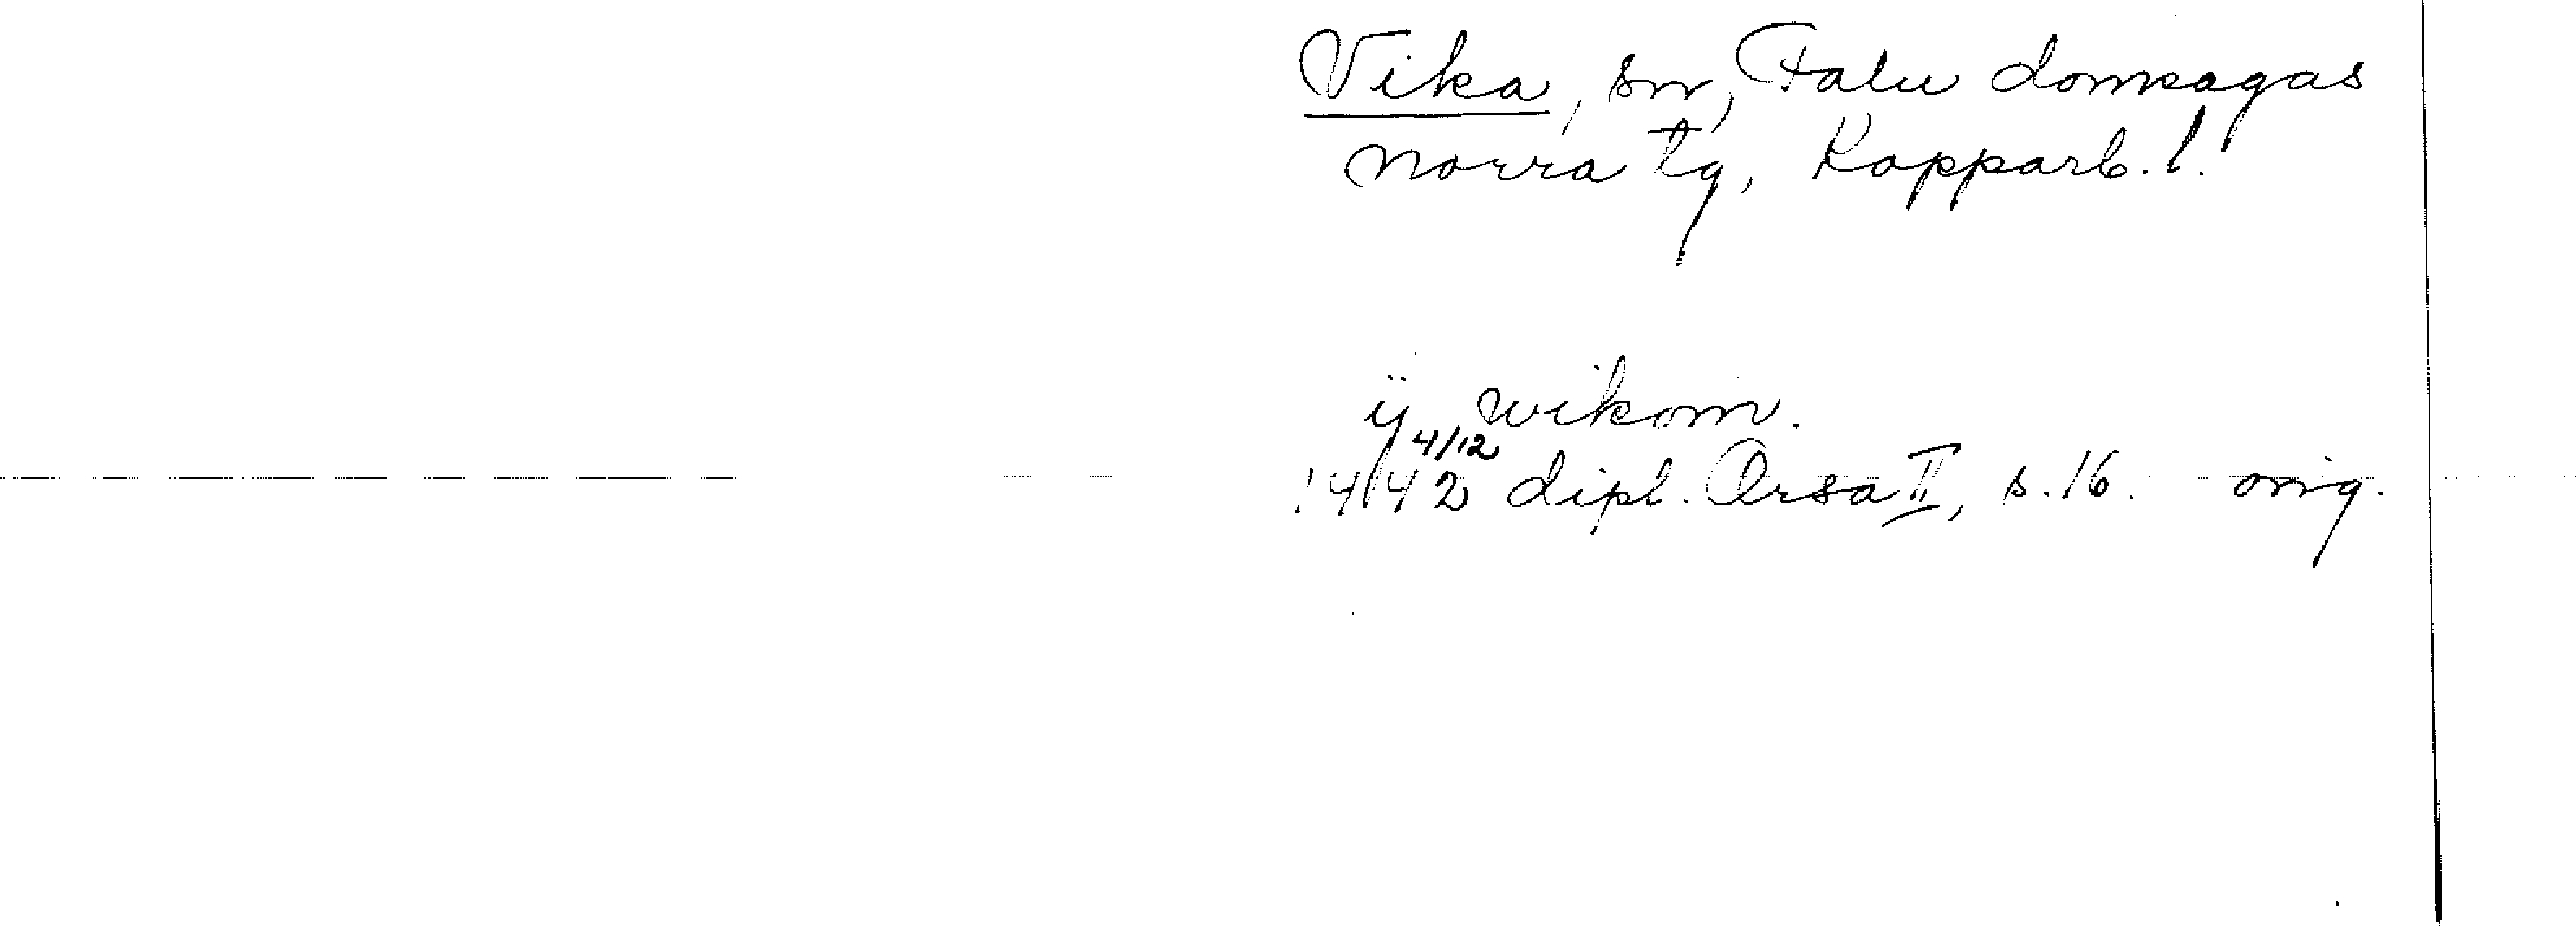 Vika, sn, Falu domsagas
norra tg, Kopparb. l.
ÿ wikom.
1442 4/12 dipl. Orsa II, s. 16. orig.